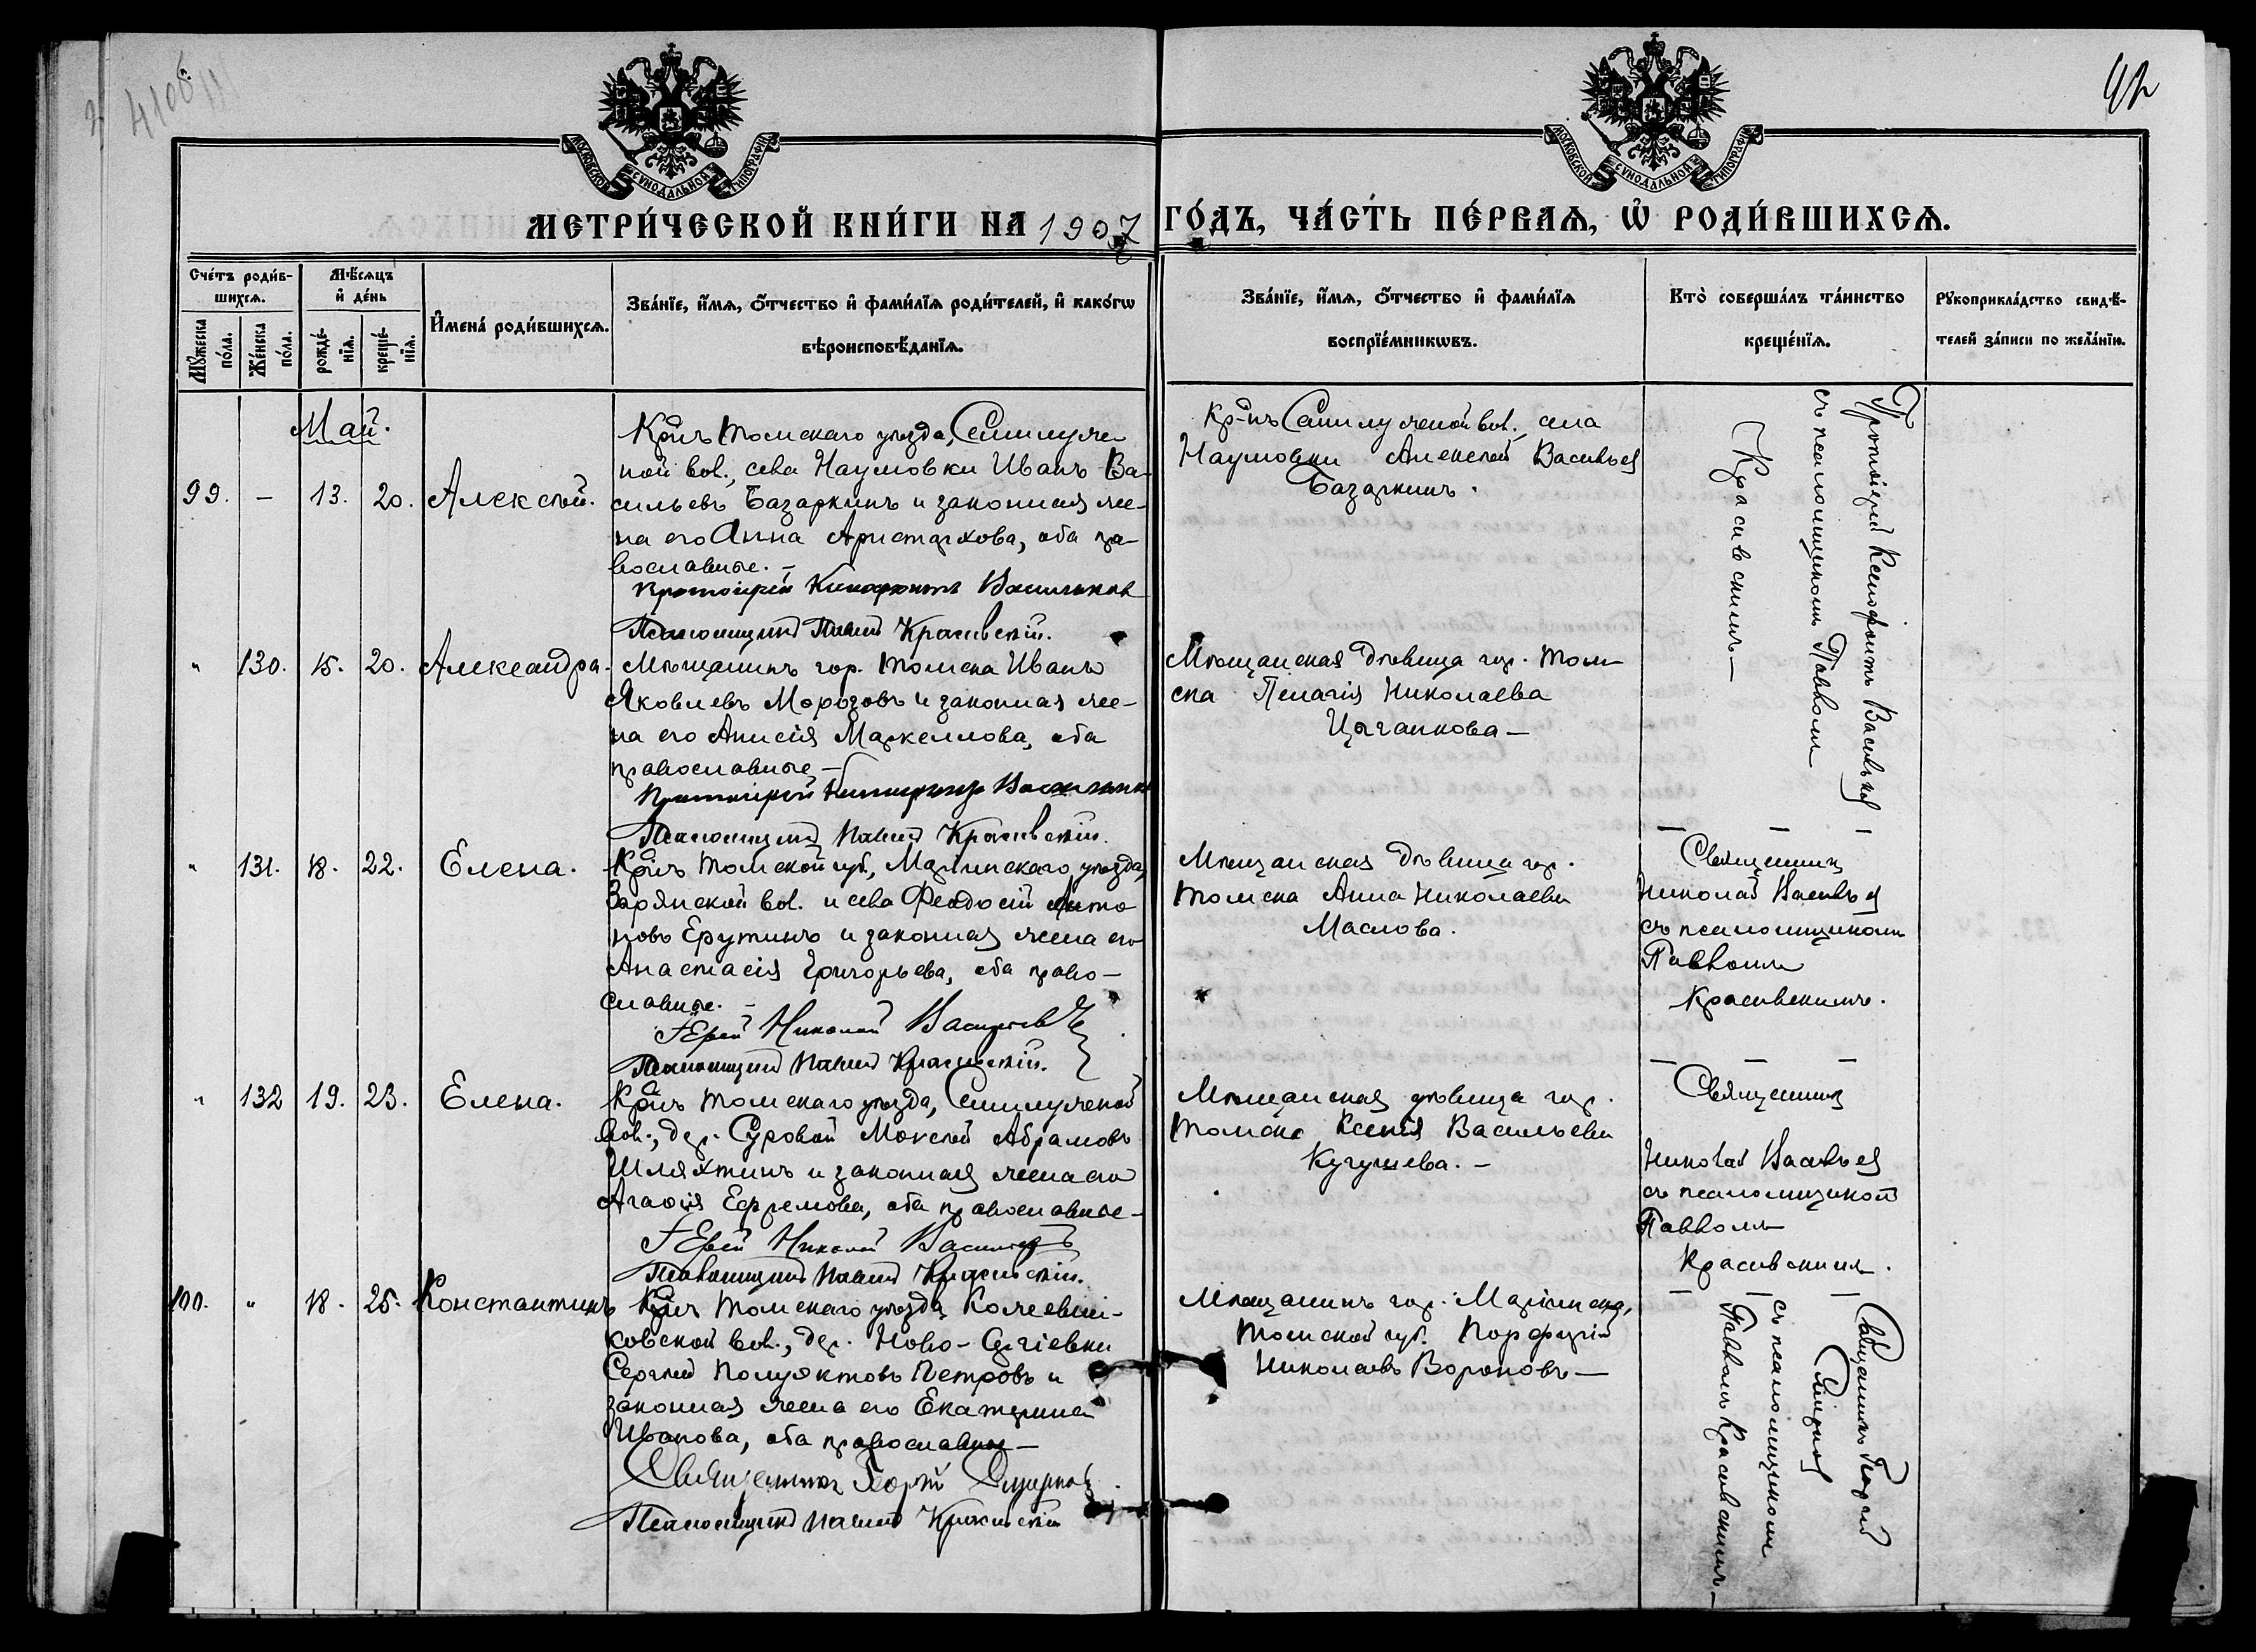 41об
42
МОСКОВСКОЙ СѴНОДАЛЬНОЙ ТИПОГРАФІИ
МОСКОВСКОЙ СѴНОДАЛЬНОЙ ТИПОГРАФІИ
МЕТРИ́ЧЕСКОЙ КНИ́ГИ НА 1907 ГО́ДЪ, ЧА́СТЬ ПЕ́РВАѦ, Ѡ҆ РОДИ́ВШИХСѦ.
Счéтъ роди́в-
шихсѧ.
Мꙋ́жеска
по́ла.
Же́нска
по́ла.
Мѣ́сѧцъ
и҆ де́нь
рожде́-
нїѧ.
креще́-
нїѧ.
И҆мена́ роди́вшихсѧ.
Зва́нїе, и҆́мѧ, ѻ҆́тчество и҆ фами́лїѧ роди́телей, и҆ како́гѡ
вѣроисповѣ́данїѧ.
Зва́нїе, и҆́мѧ, ѻ҆́тчество и҆ фами́лїѧ
воспрїе́мникѡвъ.
Кто̀ соверша́лъ та́инство
креще́нїѧ.
Рꙋкоприкла́дство свидѣ́-
телей за́писи по жела́нїю.
Май.
99. — 13. 20. Алексѣй.
Кр-нъ Томскаго уѣзда, Семилуже-
ной вол., села Наумовки Иванъ Ва-
сильевъ Базаркинъ и законная же-
на его Анна Аристархова, оба пра-
вославные. —
Протоіерей Ксенофонтъ Васильковъ
Псаломщикъ Павелъ Красивскій.
Кр-нъ Семилуженой вол., села
Наумовки Алексѣй Васильевъ
Базаркинъ.
Протоіерей Ксенофонтъ Васильковъ
съ псаломщикомъ Павломъ
Красивскимъ —
" 130. 15. 20. Александра.
Мѣщанинъ гор. Томска Иванъ
Яковлевъ Морозовъ и законная же-
на его Анисія Маркеллова, оба
православные —
Протоіерей Ксенофонтъ Васильковъ
Псаломщикъ Павелъ Красивскій.
Мѣщанская дѣвица гор. Том-
ска Пелагія Николаева
Цыганкова —
" 131. 18. 22. Елена.
Кр-нъ Томской губ., Маріинскаго уѣзда,
Зырянской вол. и села Феодосій Анто
новъ Ерутинъ и законная жена его
Анастасія Григорьева, оба право-
славные. —
Іерей Николай Васильевъ
Псаломщикъ Павелъ Красивскій.
Мѣщанская дѣвица гор.
Томска Анна Николаева
Маслова.
Священникъ
Николай Васильевъ
съ псаломщикомъ
Павломъ
Красивскимъ.
" 132 19. 23. Елена.
Кр-нъ Томскаго уѣзда, Семилуженой
вол., дер. Суровой Моисей Абрамовъ
Шляхтинъ и законная жена его
Агаѳія Ефремова, оба православные —
Іерей Николай Васильевъ
Псаломщикъ Павелъ Красивскій.
Мѣщанская дѣвица гор.
Томска Ксенія Васильева
Кугушева. —
Священникъ
Николай Васильевъ
съ псаломщикомъ
Павломъ
Красивскимъ.
100. " 18. 25. Константинъ
Кр-нъ Томскаго уѣзда Кожевни-
ковской вол., дер. Ново-Сергіевки
Сергѣй Полуэктовъ Петровъ и
законная жена его Екатерина
Иванова, оба православные —
Священникъ Георгій Смирновъ.
Псаломщикъ Павелъ Красивскій
Мѣщанинъ гор. Маріинска,
Томской губ. Порфирій
Николаевъ Вороновъ —
Священникъ Георгій
Смирновъ
съ псаломщикомъ
Павломъ Красивскимъ —